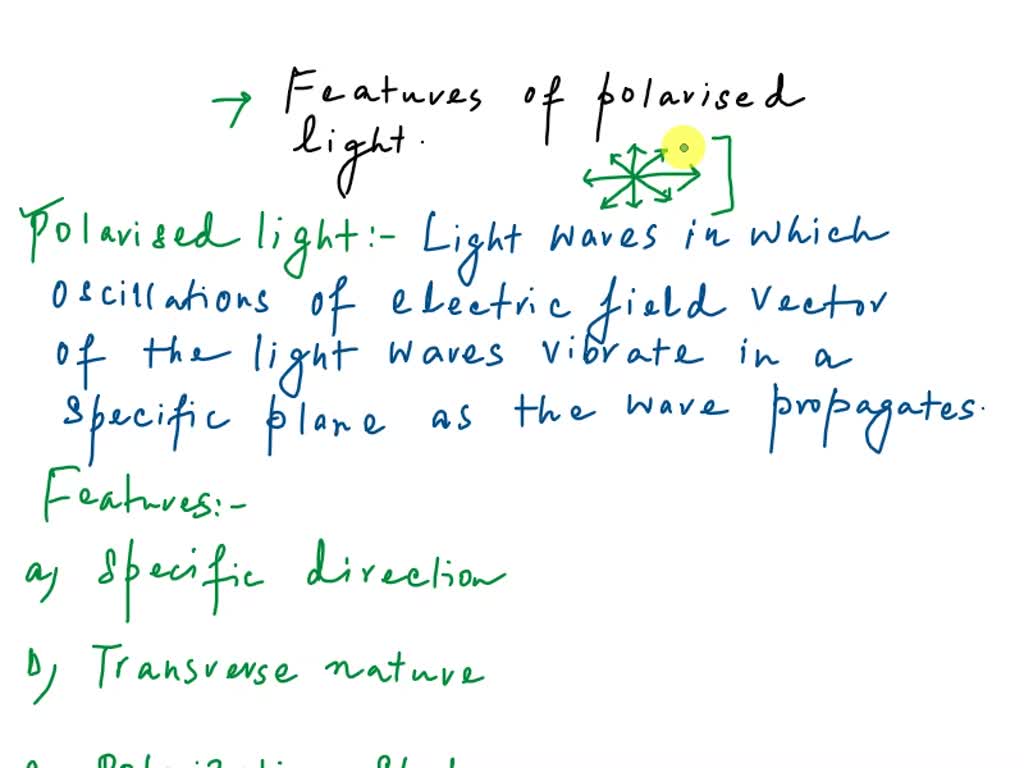 → Features of polarised
light.
Polarised light:- Light waves in which
oscillations of electric field vector
of the light waves vibrate in a
specific plane as the wave propagates.
Features:-
a) Specific direction
b) Transverse nature